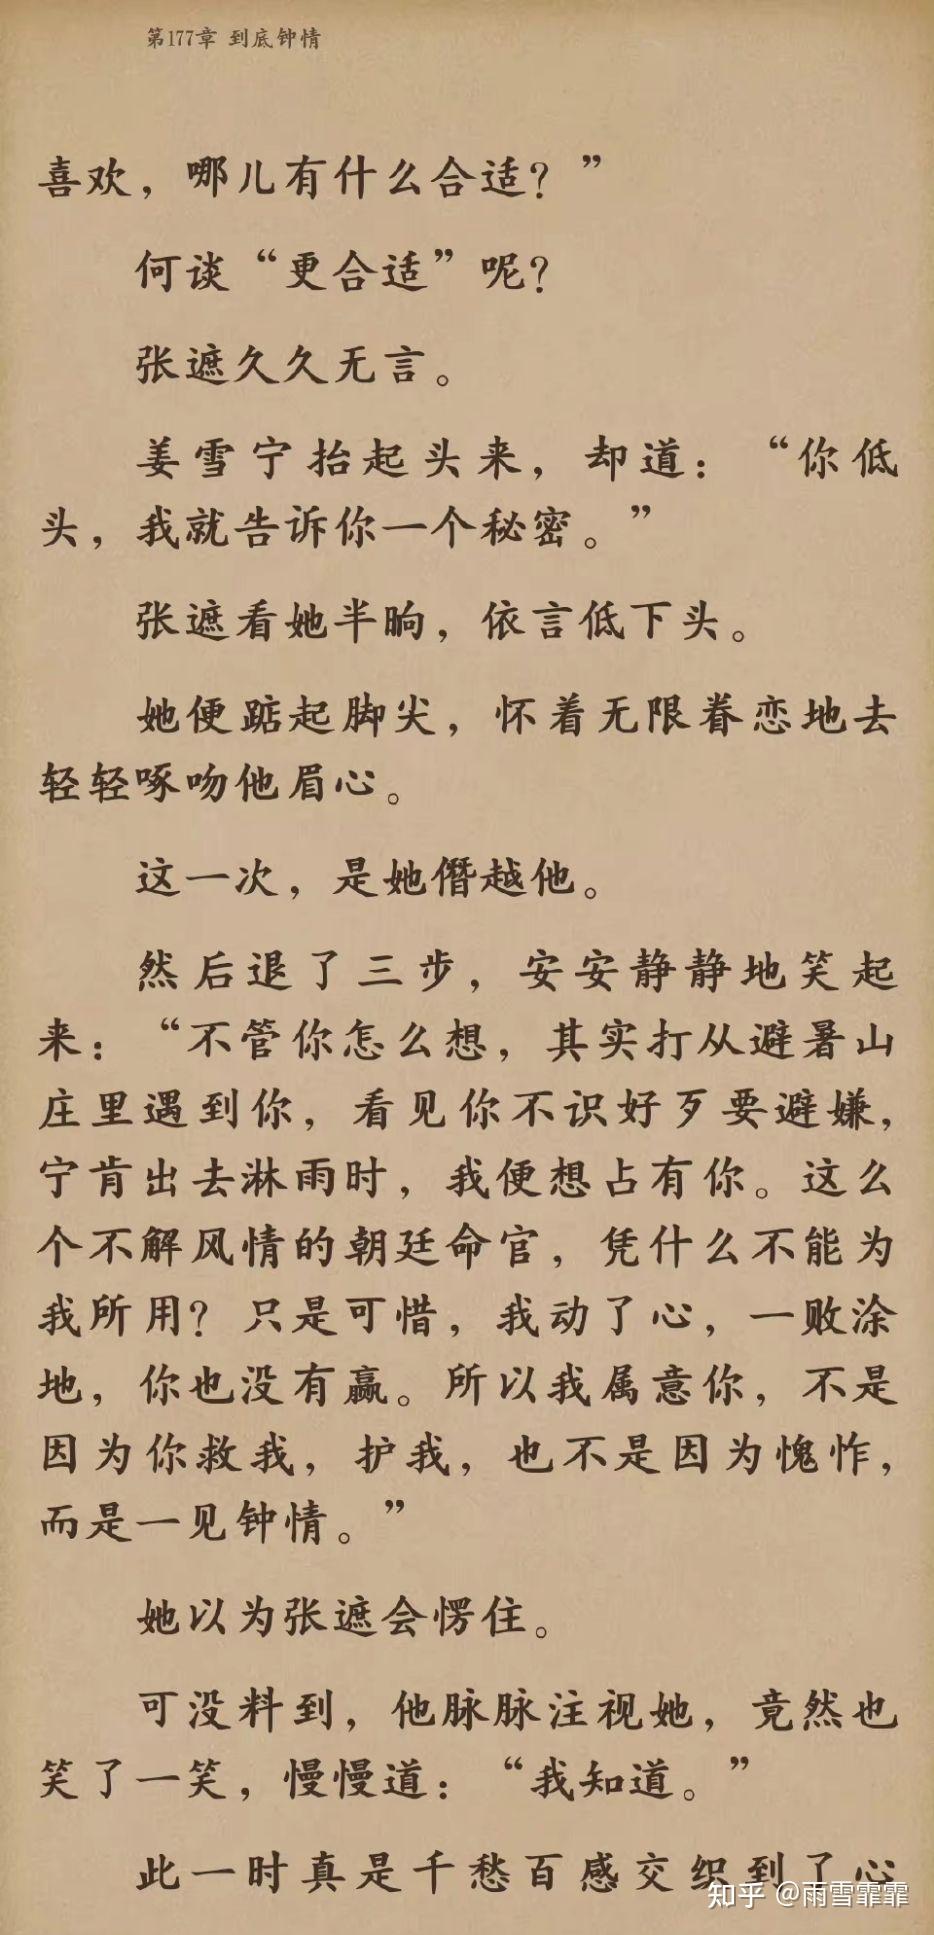 第177章 到底钟情
喜欢，哪儿有什么合适？”
何谈“更合适”呢？
张遮久久无言。
姜雪宁抬起头来，却道：“你低
头，我就告诉你一个秘密。”
张遮看她半晌，依言低下头。
她便踮起脚尖，怀着无限眷恋地去
轻轻啄吻他眉心。
这一次，是她僭越他。
然后退了三步，安安静静地笑起
来：“不管你怎么想，其实打从避暑山
庄里遇到你，看见你不识好歹要避嫌，
宁肯出去淋雨时，我便想占有你。这么
个不解风情的朝廷命官，凭什么不能为
我所用？只是可惜，我动了心，一败涂
地，你也没有赢。所以我属意你，不是
因为你救我，护我，也不是因为愧怍，
而是一见钟情。”
她以为张遮会愣住。
可没料到，他脉脉注视她，竟然也
笑了一笑，慢慢道：“我知道。”
此一时真是千愁百感交织到了心
知乎 @雨雪霏霏